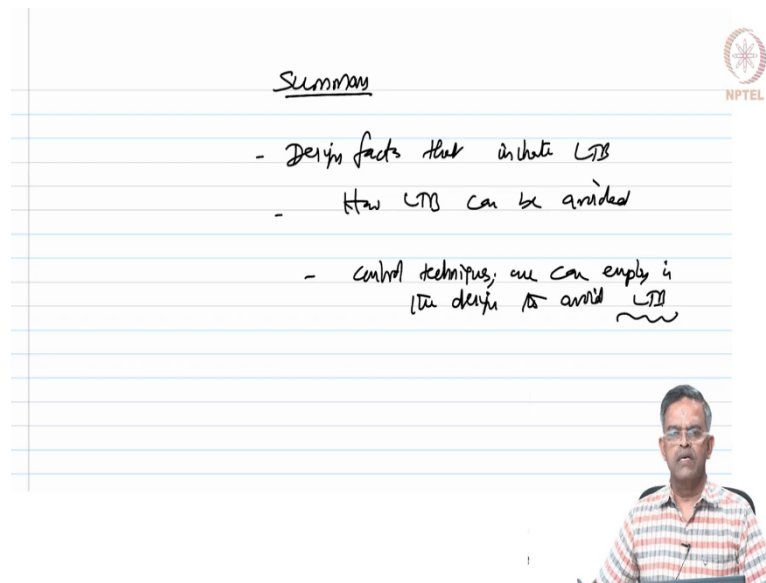 Summary
NPTEL
- Design facts that initiate LTB
- How LTB can be avoided
- control techniques; one can employ in
the design to avoid LTB